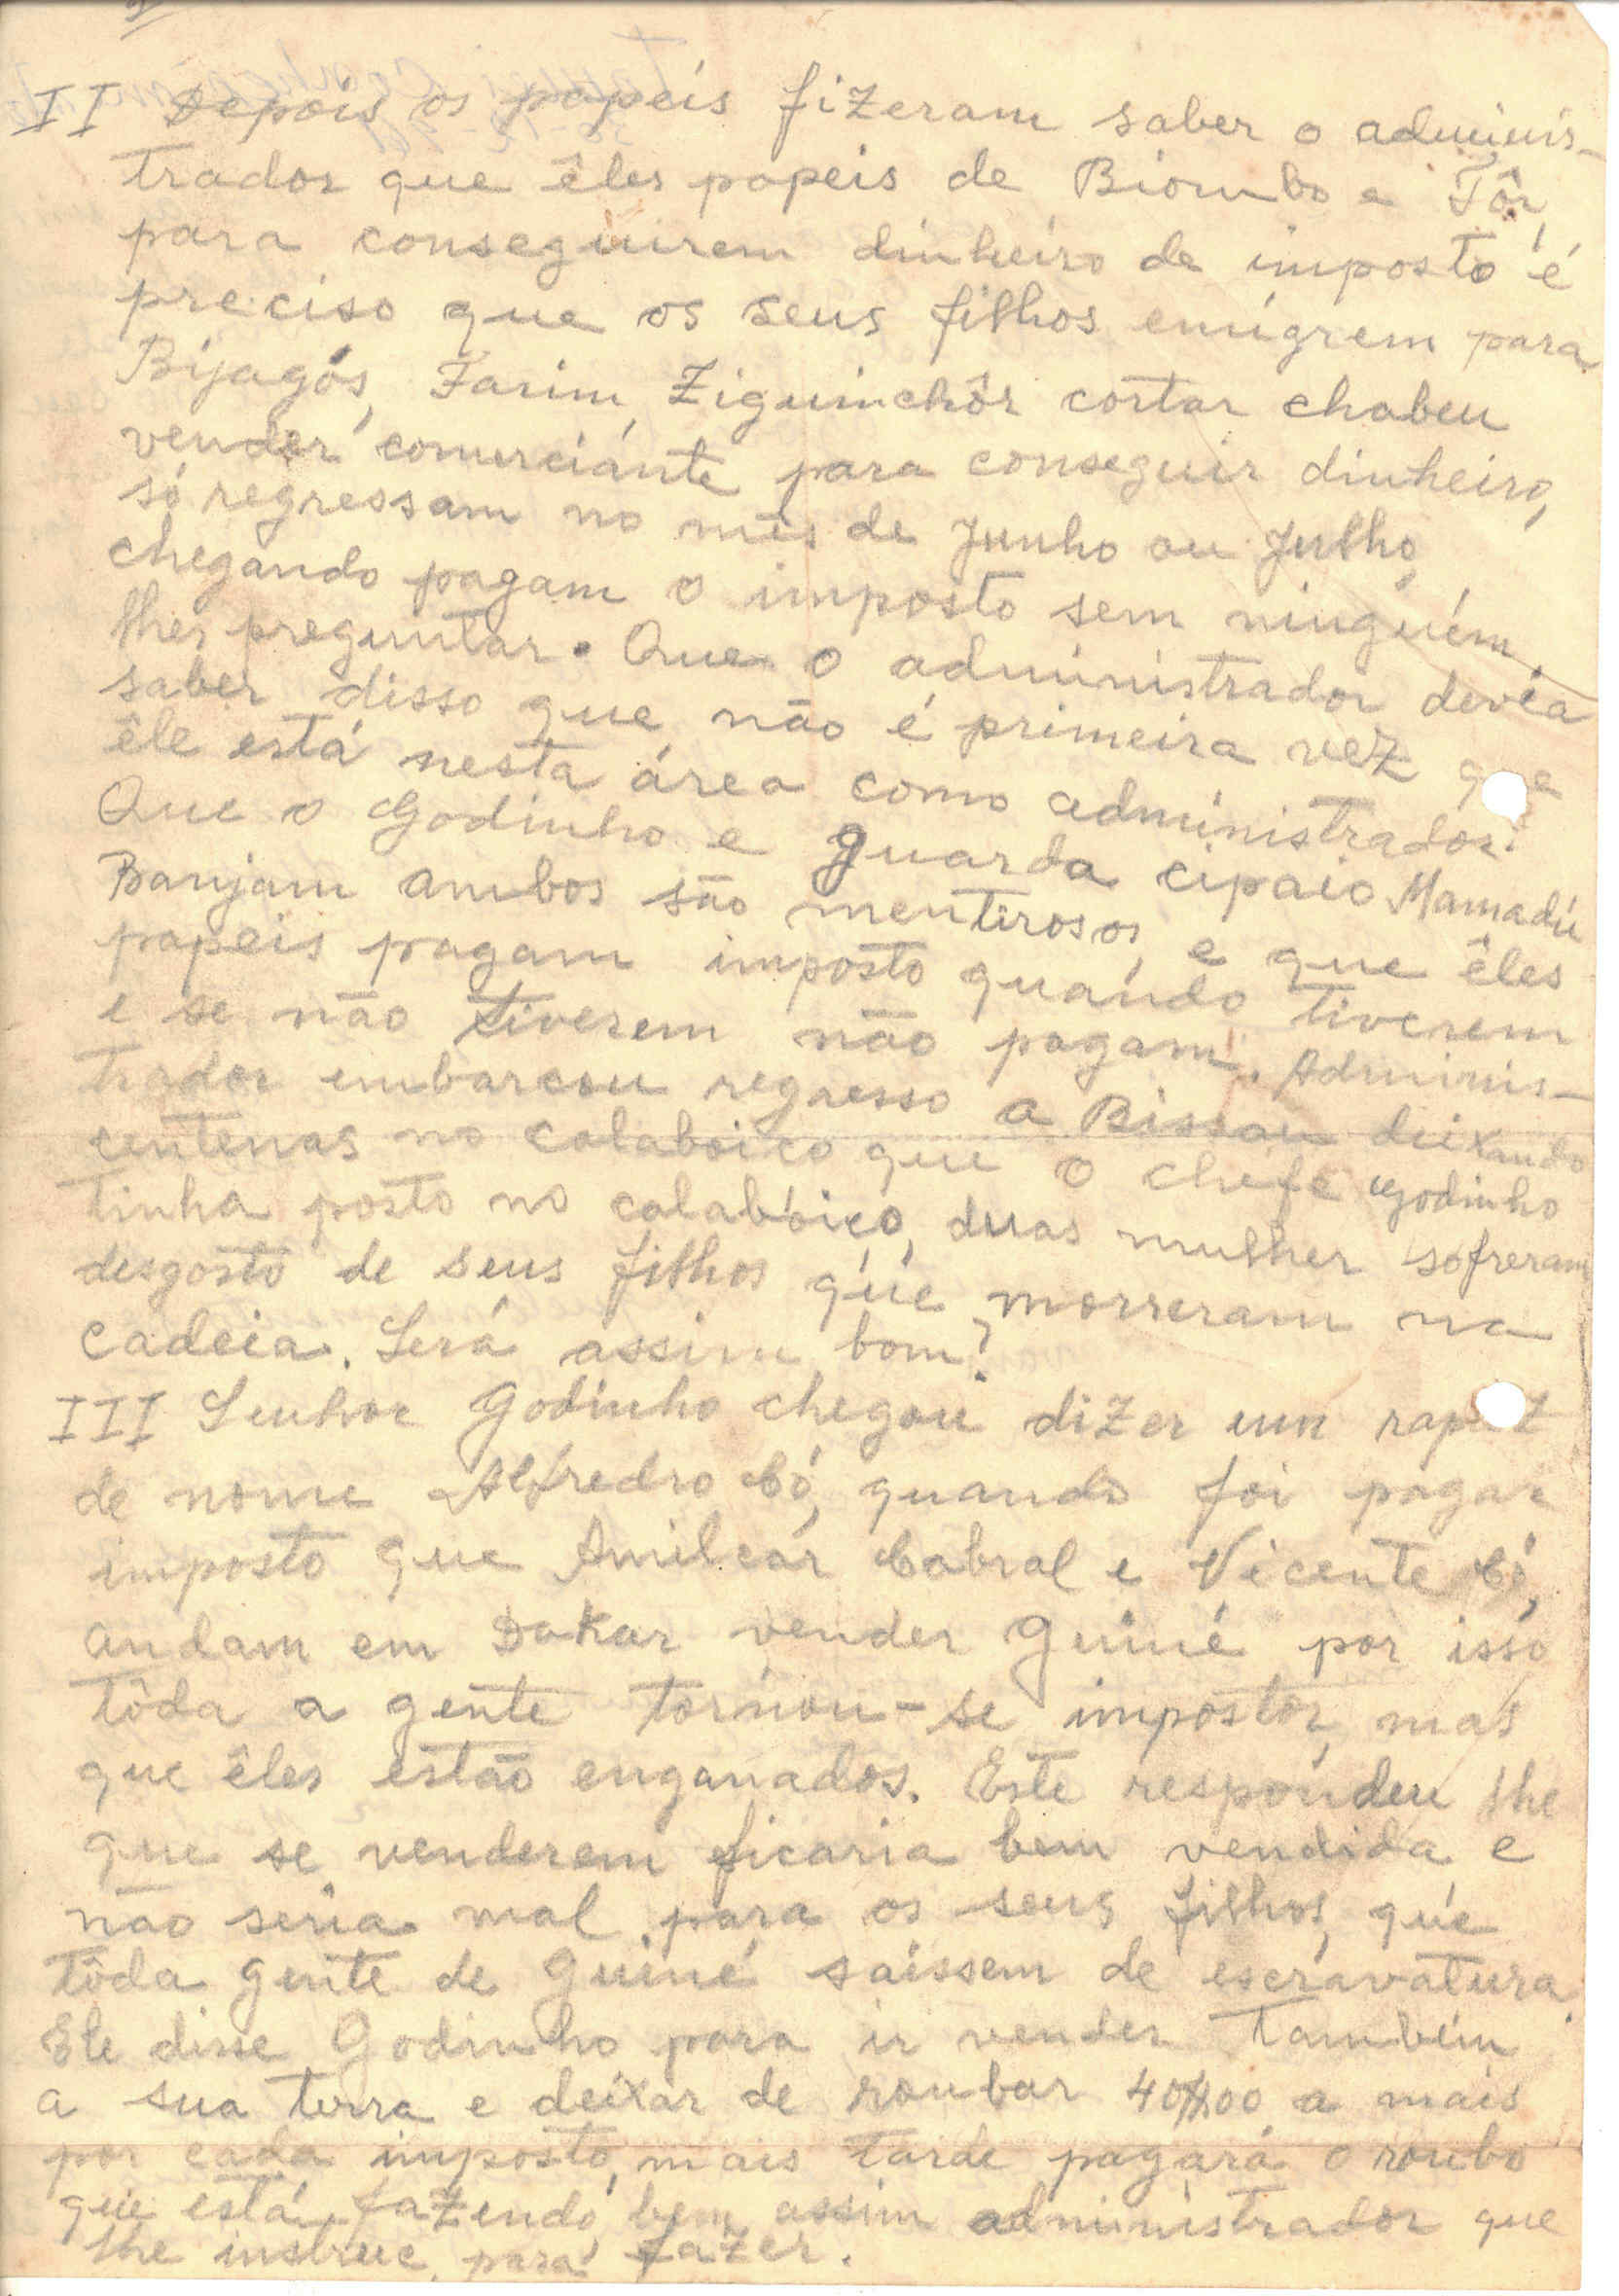 2
II Depois os papeis fizeram saber o adminis-
trador que êles papeis de Biombo e Tôr,
para conseguirem dinheiro de imposto é
preciso que os seus filhos emigrem para
Bijagós, Farim, Ziguinchôr cortar chabeu
vender comerciante para conseguir dinheiro,
só regressam no mês de Junho ou Julho,
chegando pagam o imposto sem ninguém
lhes preguntar. Que o administrador devia
saber disso que não é primeira vez que
êle está nesta área como administrador.
Que o Godinho e guarda cipaio Mamadú
Banjam ambos são mentirosos, e que êles
papeis pagam imposto quando tiverem
e se não tiverem não pagam. Adminis-
trador embarcou regresso a Bissau deixando
centenas no calaboiço que o chefe Godinho
tinha posto no calaboiço, duas mulher sofreram
desgosto de seus filhos que morreram na
cadeia. Será assim bom?
III Senhor Godinho chegou dizer um rapaz
de nome Alfredro Có, quando foi pagar
imposto que Amilcar Cabral e Vicente Có,
andam em Dakar vender Guiné por isso
tôda a gente tornou-se impostor, mas
que êles estão enganados. Este respondeu lhe
que se venderem ficaria bem vendida e
não seria mal para os seus filhos, que
tôda gente de Guiné saissem de escravatura.
Ele disse Godinho para ir vender também
a sua terra e deixar de roubar 40$00 a mais
por cada imposto, mais tarde pagará o roubo
que está fazendo, bem assim administrador que
lhe instrue para fazer.